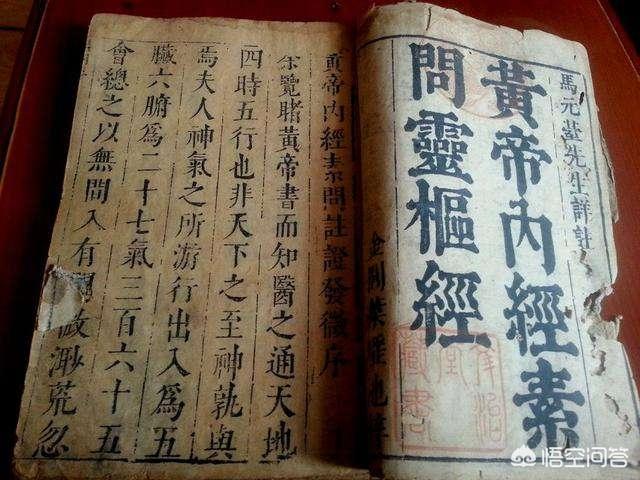 馬元臺先生詳註
黃帝內經素
問靈樞經
黃帝內經素問註證發微序
余覽睹黃帝書而知醫之通天地
四時五行也非天下之至神孰與
焉夫人神氣之所游行出入爲五
臟六腑爲二十七氣三百六十五
會總之以無間入有間故渺荒忽
藏書
悟空问答